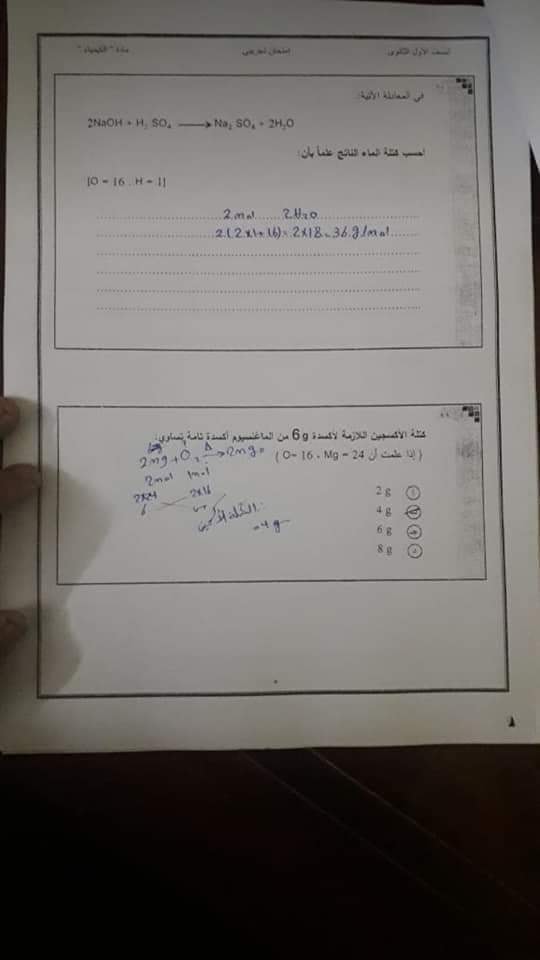 الصف الأول الثانوي امتحان تجريبي مادة " الكيمياء "
في المعادلة الآتية:
2NaOH + H₂ SO₄ ⟶ Na₂ SO₄ + 2H₂O
احسب كتلة الماء الناتج علماً بأن:
[O = 16 . H = 1]
2 mol 2H₂O
2(2x1+16)= 2x18=36 g/mol
كتلة الأكسجين اللازمة لأكسدة 6 g من الماغنسيوم أكسدة تامة تساوي:
( إذا علمت أن O= 16 ، Mg = 24 )
2mg + O₂ ⟶ Δ 2mgo
2mol 1mol
2x24 2x16
6 س
= 4 g
2 g أ
4 g
6 g ج
8 g د
٨